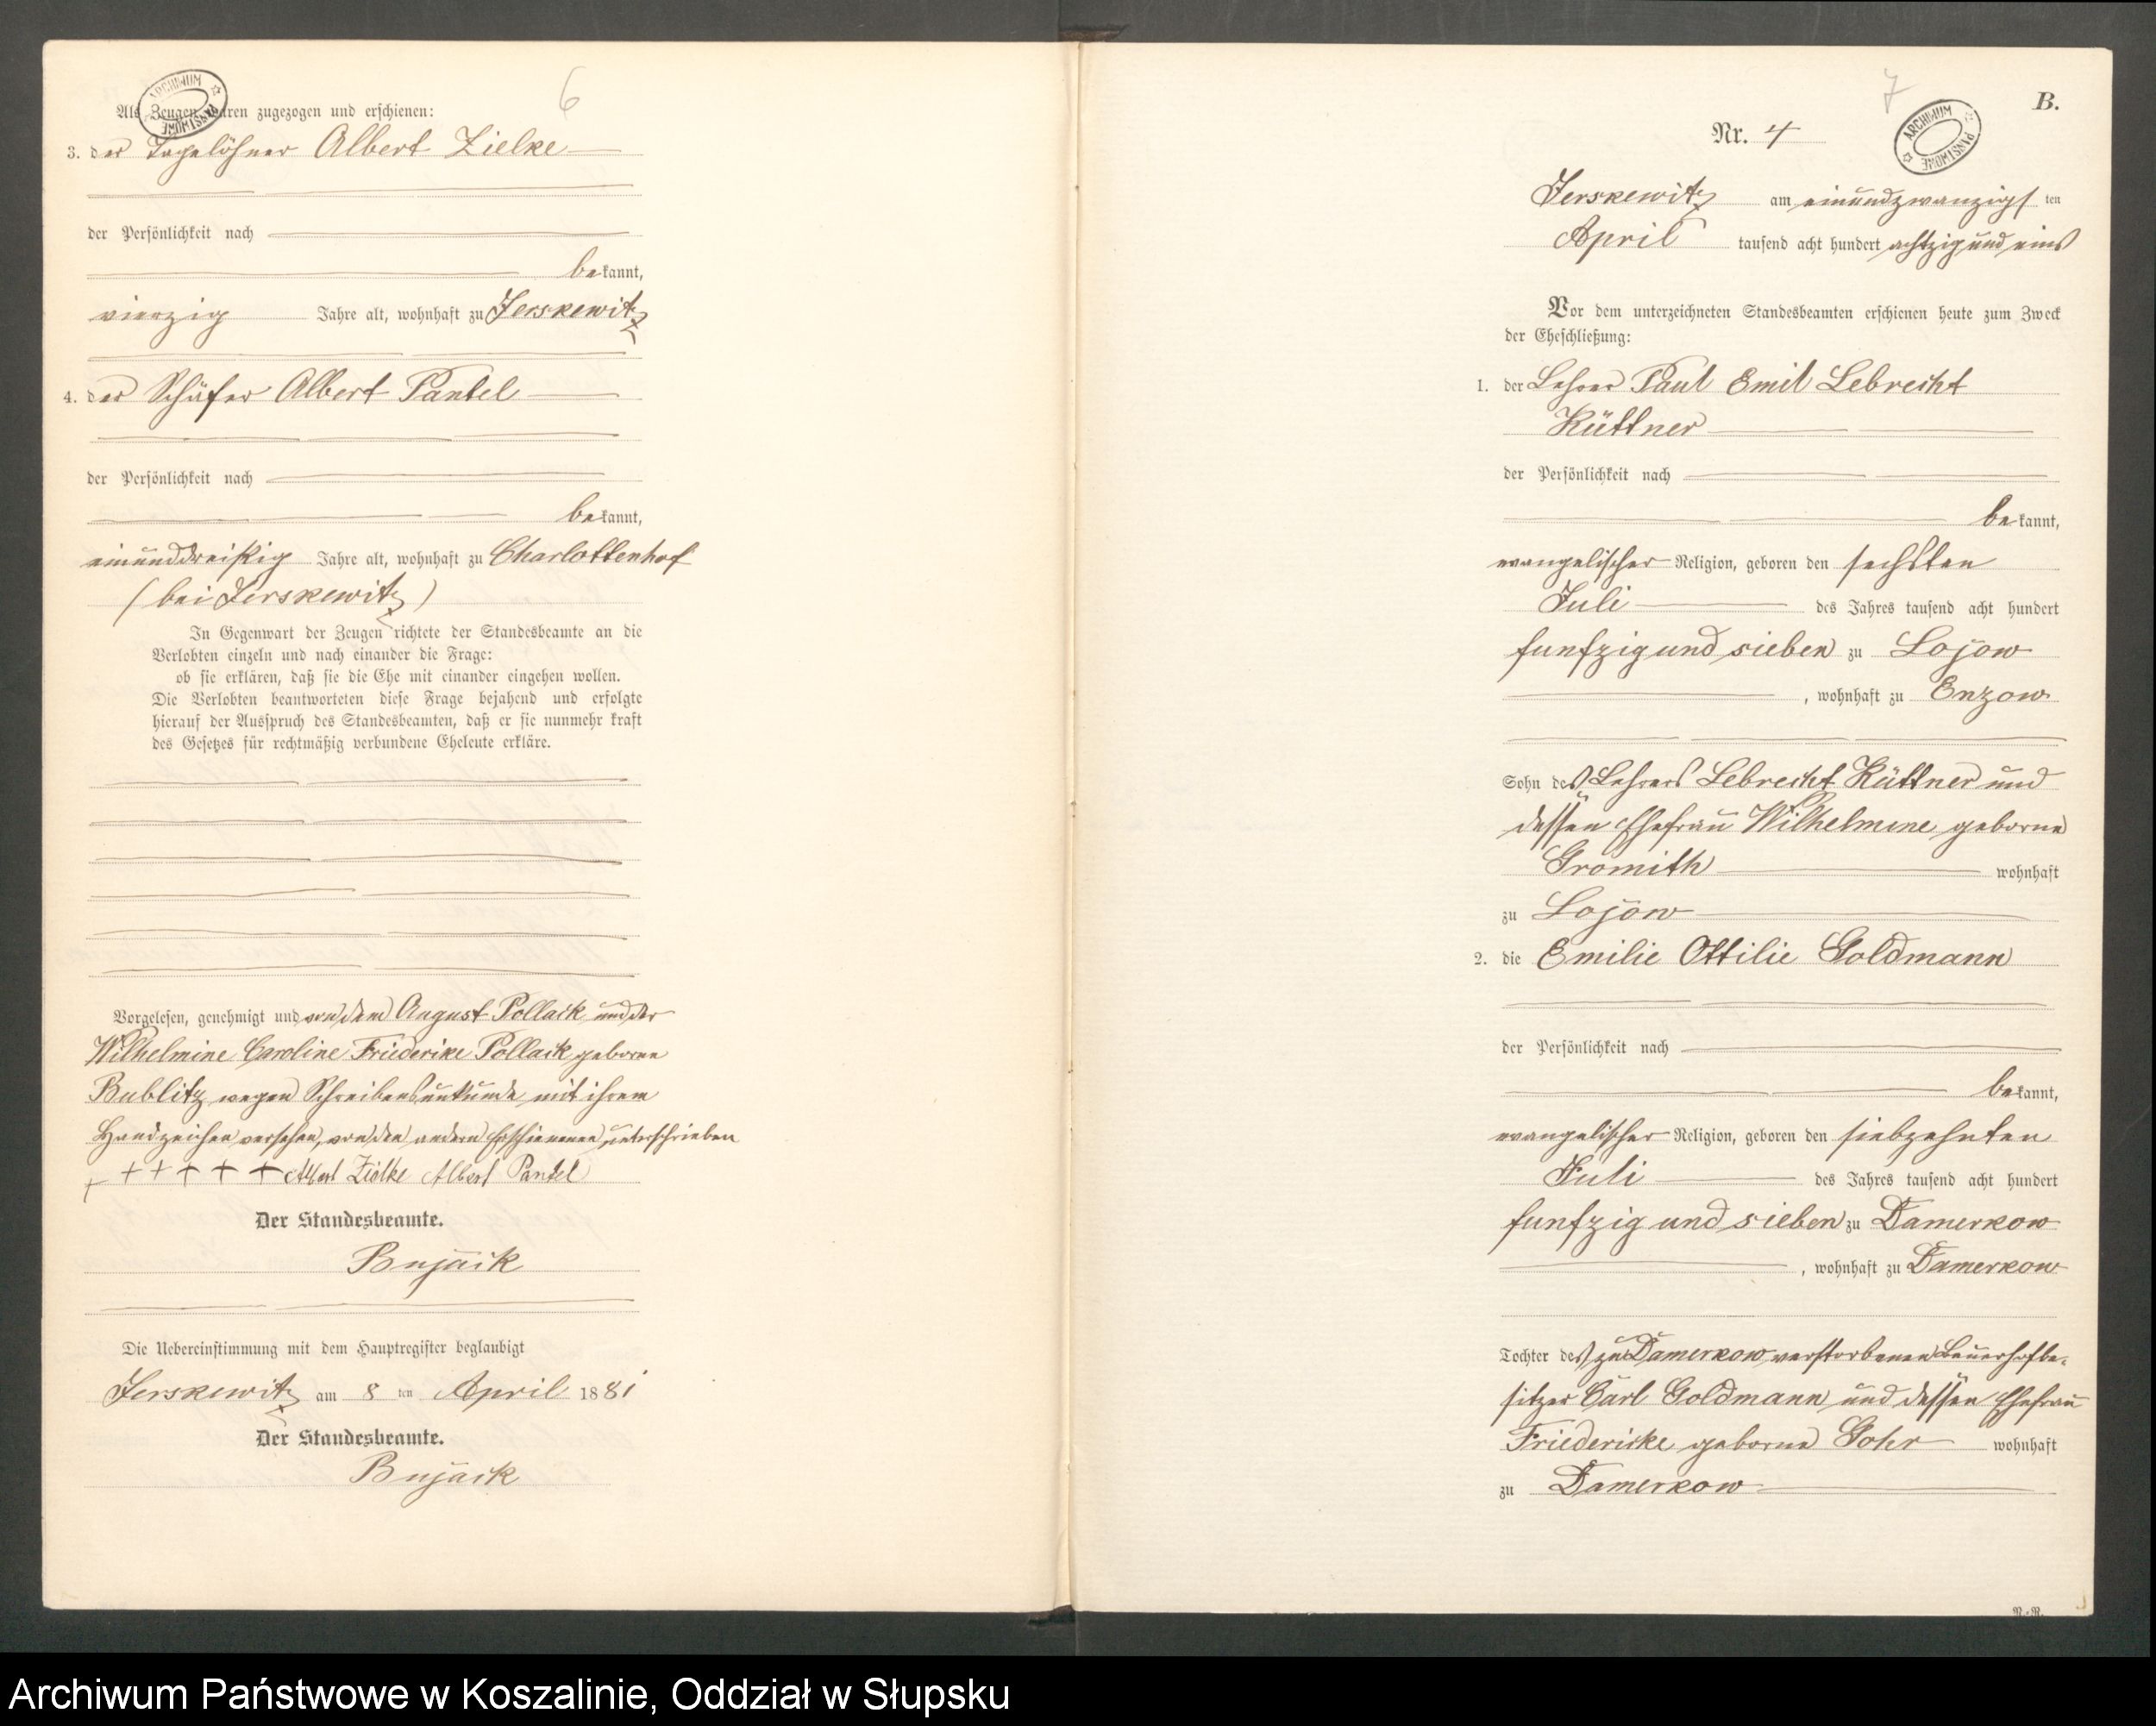 6
Als Zeugen waren zugezogen und erschienen:
3. der Tagelöhner Albert Zielke
der Persönlichkeit nach
bekannt,
vierzig Jahre alt, wohnhaft zu Jerskewitz
4. der Schäfer Albert Pantel
der Persönlichkeit nach
bekannt,
einunddreißig Jahre alt, wohnhaft zu Charlottenhof
(bei Jerskewitz)
In Gegenwart der Zeugen richtete der Standesbeamte an die
Verlobten einzeln und nach einander die Frage:
ob sie erklären, daß sie die Ehe mit einander eingehen wollen.
Die Verlobten beantworteten diese Frage bejahend und erfolgte
hierauf der Ausspruch des Standesbeamten, daß er sie nunmehr kraft
des Gesetzes für rechtmäßig verbundene Eheleute erkläre.
Vorgelesen, genehmigt und von dem August Pollack und der
Wilhelmine Caroline Friederike Pollack geborne
Bublitz wegen Schreibensunkunde mit ihrem
Handzeichen versehen, von den andern Erschienenen unterschrieben
+ + + + + + Albert Zielke Albert Pantel
Der Standesbeamte.
Bujack
Die Uebereinstimmung mit dem Hauptregister beglaubigt
Jerskewitz am 8 ten April 1881
Der Standesbeamte.
Bujack
7
B.
Nr. 4
ARCHIWUM PAŃSTWOWE
Jerskewitz am einundzwanzigsten
April tausend acht hundert achtzig und eins
Vor dem unterzeichneten Standesbeamten erschienen heute zum Zweck
der Eheschließung:
1. der Lehrer Paul Emil Lebrecht
Küttner
der Persönlichkeit nach
bekannt,
evangelischer Religion, geboren den sechsten
Juli des Jahres tausend acht hundert
funfzig und sieben zu Lojow
, wohnhaft zu Enzow
Sohn des Lehrers Lebrecht Küttner und
dessen Ehefrau Wilhelmine geborne
Gromith wohnhaft
zu Lojow
2. die Emilie Ottilie Goldmann
der Persönlichkeit nach
bekannt,
evangelischer Religion, geboren den siebzehnten
Juli des Jahres tausend acht hundert
funfzig und sieben zu Damerkow
, wohnhaft zu Damerkow
Tochter des zu Damerkow verstorbenen Bauerhofbe-
sitzer Carl Goldmann und dessen Ehefrau
Friedericke geborne Gohr wohnhaft
zu Damerkow
Archiwum Państwowe w Koszalinie, Oddział w Słupsku